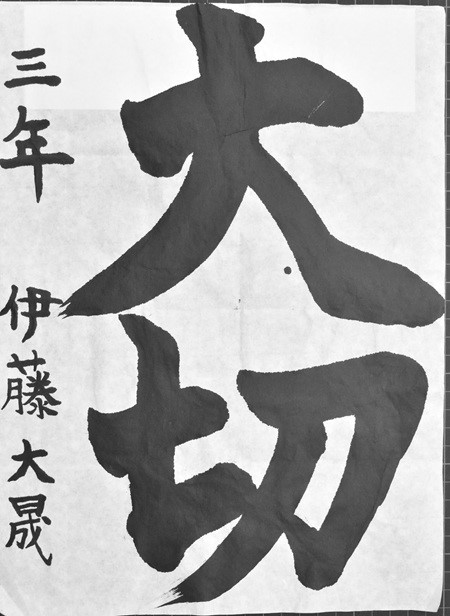 大切
三年 伊藤大晟